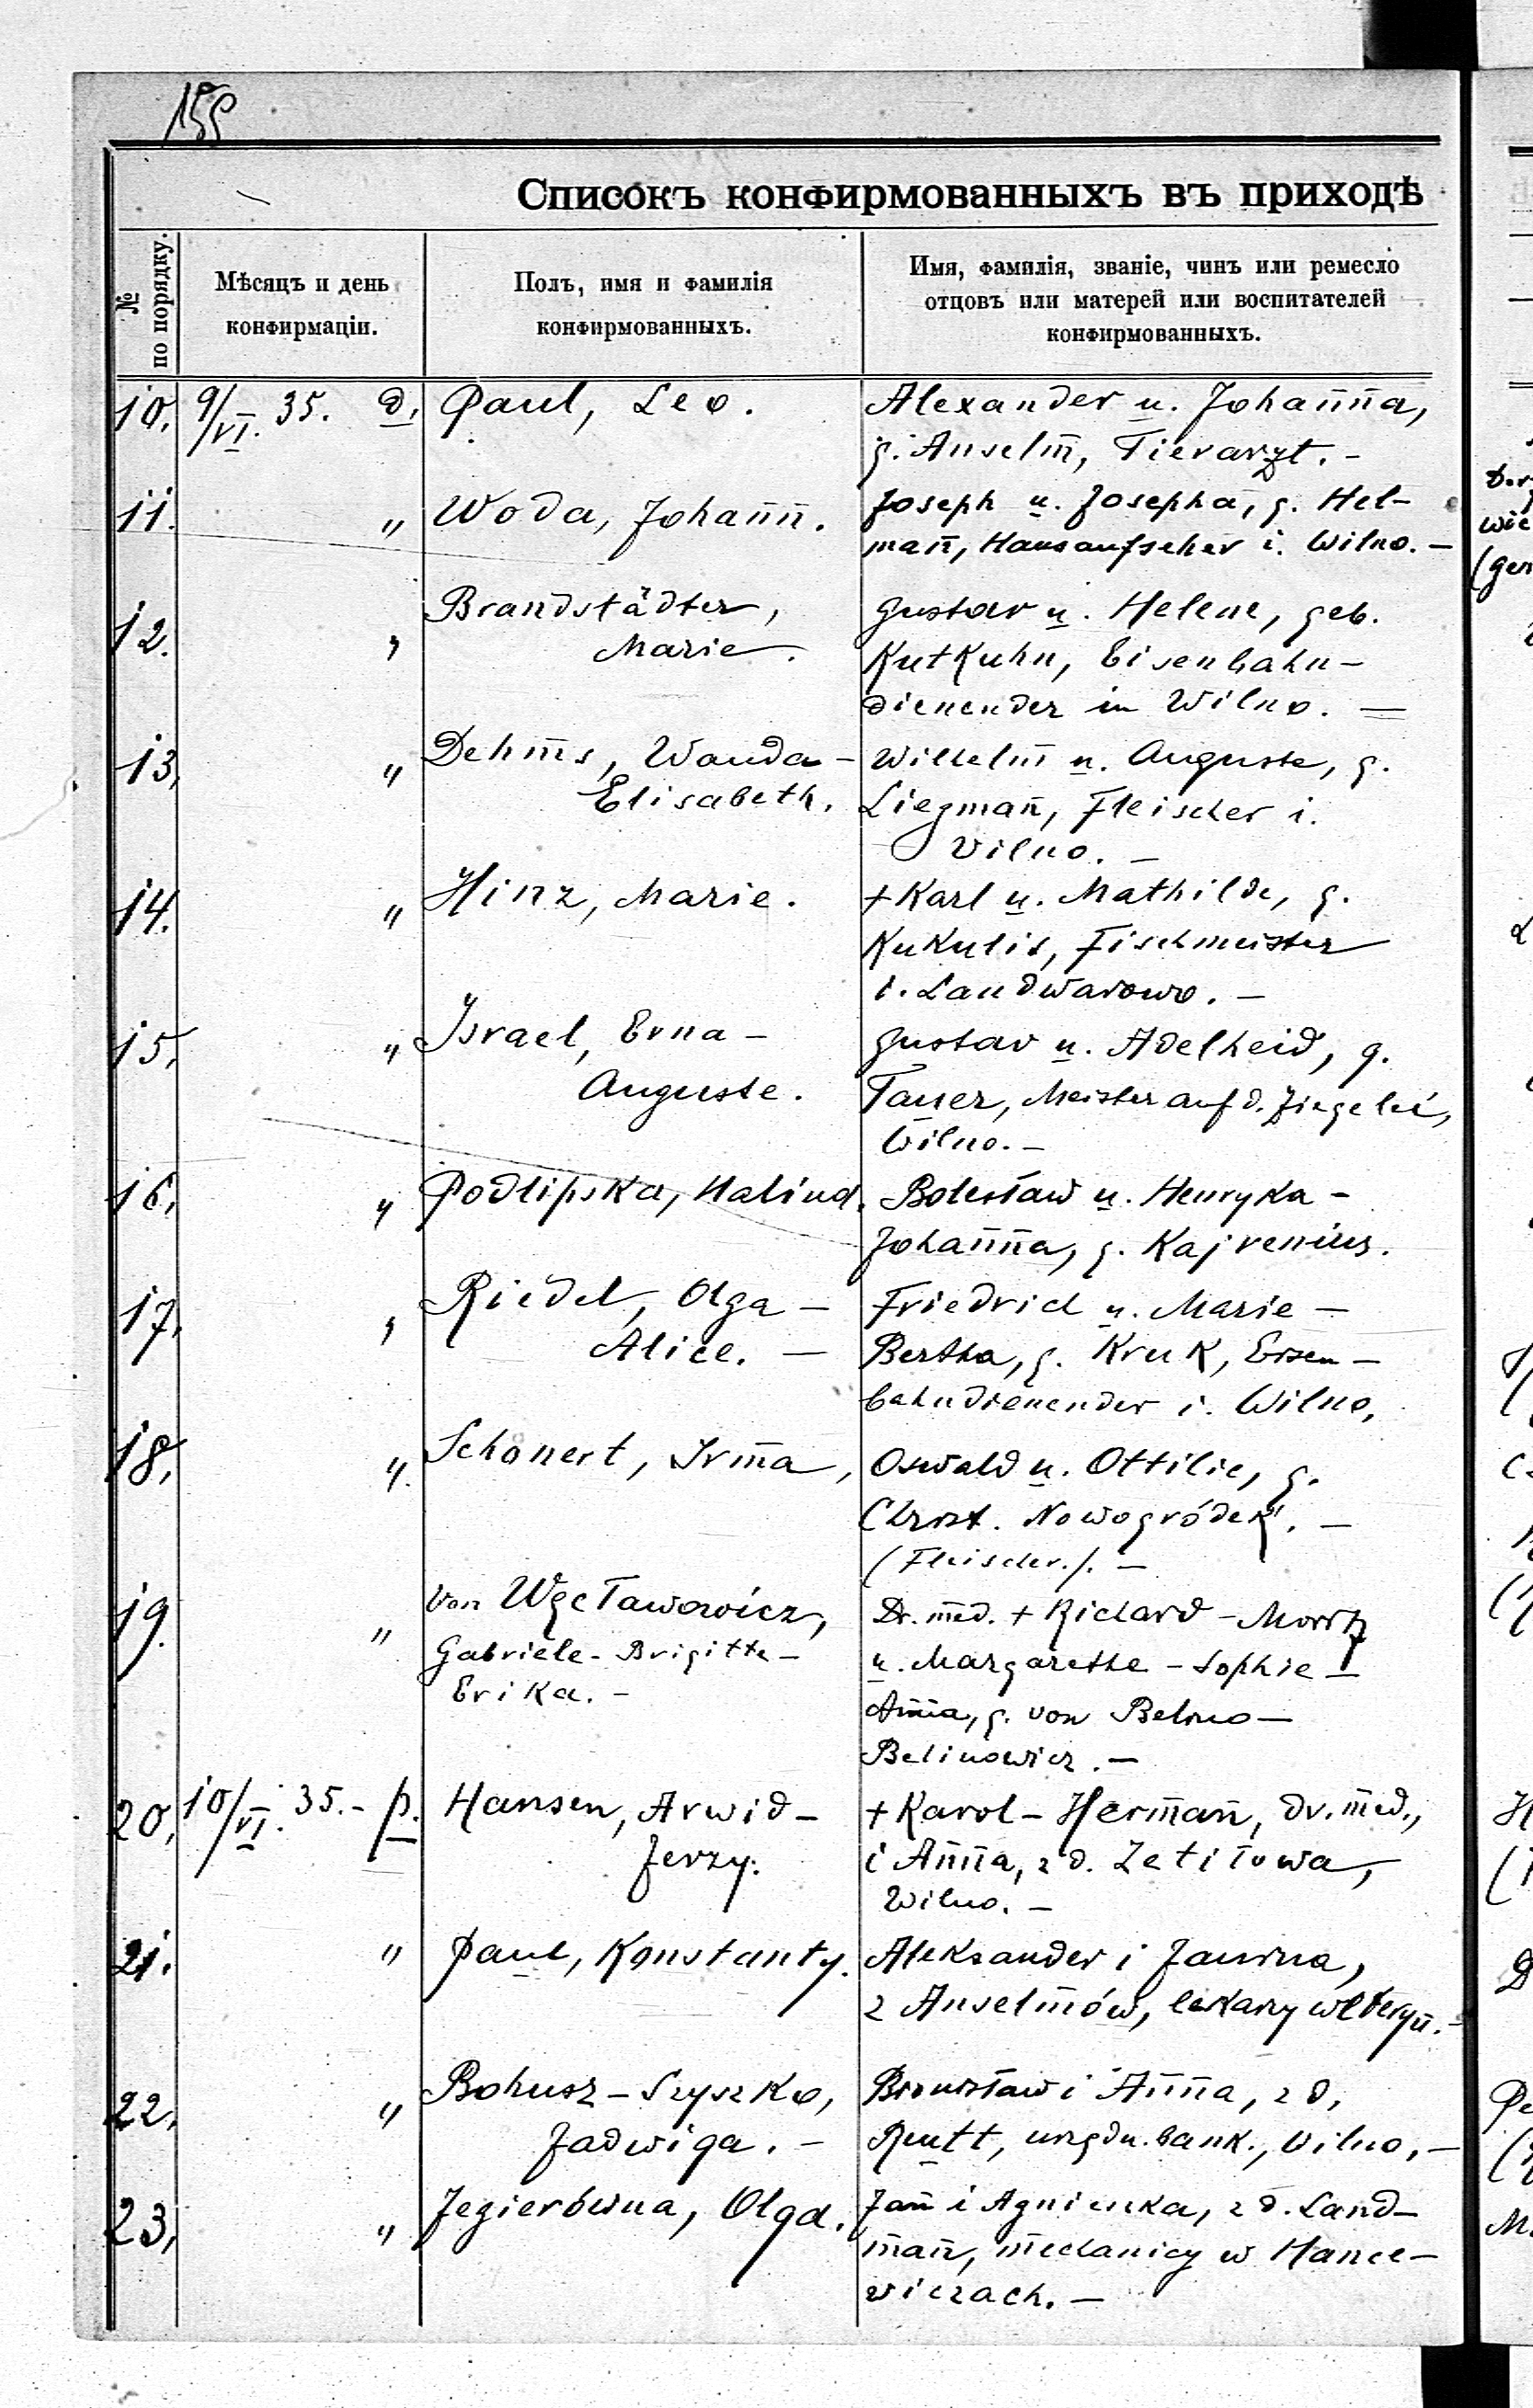 155
Списокъ конфирмованныхъ въ приходѣ
№ по порядку.
Мѣсяцъ и день
конфирмаціи.
Полъ, имя и фамилія
конфирмованныхъ.
Имя, фамилія, званіе, чинъ или ремесло
отцовъ или матерей или воспитателей
конфирмованныхъ.
10. 9/VI. 35. d. Paul, Leo. Alexander u. Joham̄n̄a,
g. Anselm̄, Tierarzt. -
11. " Woda, Johan̄n̄. Joseph u. Josepha, g. Hel-
man̄, Hausaufseher i. Wilno. -
12. " Brandstädter, Gustav u. Helene, geb.
Marie. Kutkuhn, Eisenbahn-
dienender in Wilno. =
13. " Dehm̄s, Wanda- Wilhelm̄ u. Auguste, g.
Elisabeth. Liegman̄, Fleischer i.
Wilno. -
14. " Hinz, Marie. + Karl u. Mathilde, g.
Kukulis, Fischmeister
i. Landwarowo. -
15. " Israel, Erna- Gustav u. Adelheid, g.
Auguste. Tauer, Meister auf d. Ziegelei,
Wilno. -
16. " Podlipska, Halina. Bolesław u. Henryka-
Johan̄n̄a, g. Kajrenius.
17. " Riedel, Olga- Friedrich u. Marie-
Alice. - Bertha, g. Kruk, Eisen-
bahndienender i. Wilno.
18. " Schonert, Irm̄a, Oswald u. Ottilie, g.
Christ. Nowogródek. -
(Fleischer.). -
19. " von Węcławowicz, Dr. med. + Richard-Moritz
Gabriele-Brigitte- u. Margarethe-Sophie-
Erika. - An̄n̄a, g. von Belino-
Belinowicz. -
20. 10/VI. 35. - p. Hansen, Arwid- + Karol-Herm̄an̄, dr. med.,
Jerzy. i An̄n̄a, z d. Zetiłowa,
Wilno. -
21. " Paul, Konstanty. Aleksander i Janina,
z Anselm̄ów, lekarz weteryn. -
22. " Bohusz-Szyszko, Bronisław i An̄n̄a, z d.
Jadwiga. - Rutt, urzędn. bank., Wilno. -
23. " Jegierówna, Olga. Jan̄ i Agnieszka, z d. Land-
m̄an̄, mechanicy w Hance-
wiczach. -